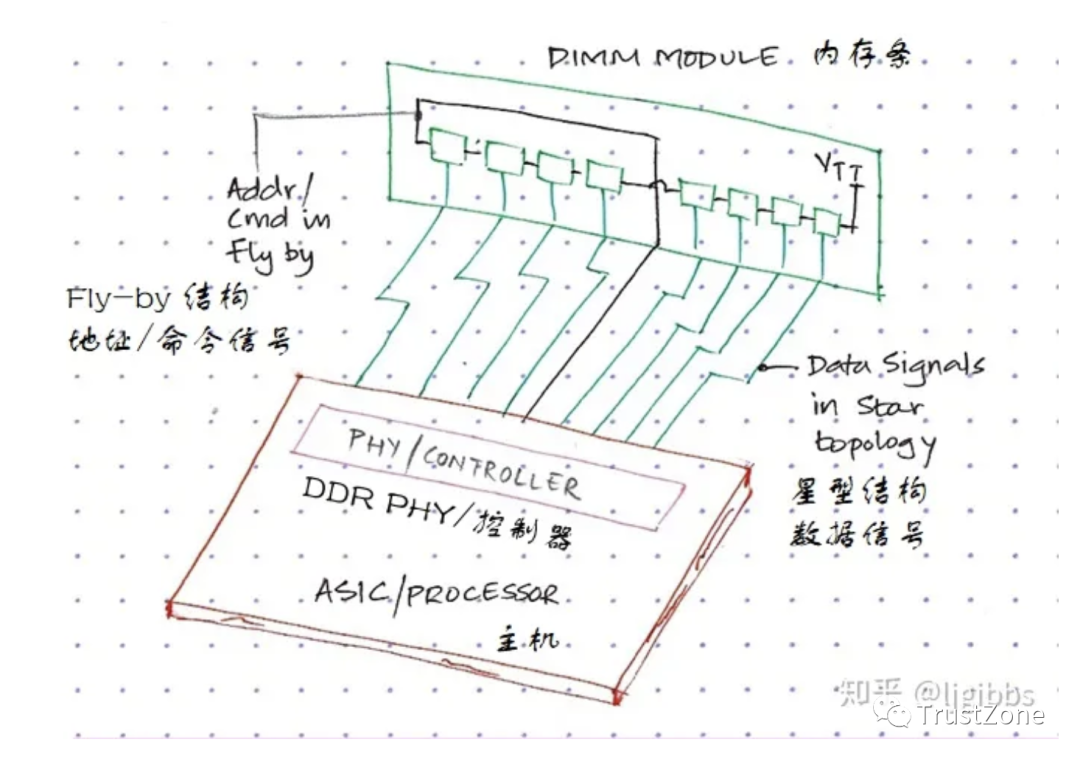 DIMM MODULE 内存条
VTT
Addr/
Cmd in
Fly by
Fly-by 结构
地址/命令信号
Data Signals
in Star
topology
星型结构
数据信号
PHY/CONTROLLER
DDR PHY/控制器
ASIC/PROCESSOR
主机
知乎 @ljgibbs
TrustZone